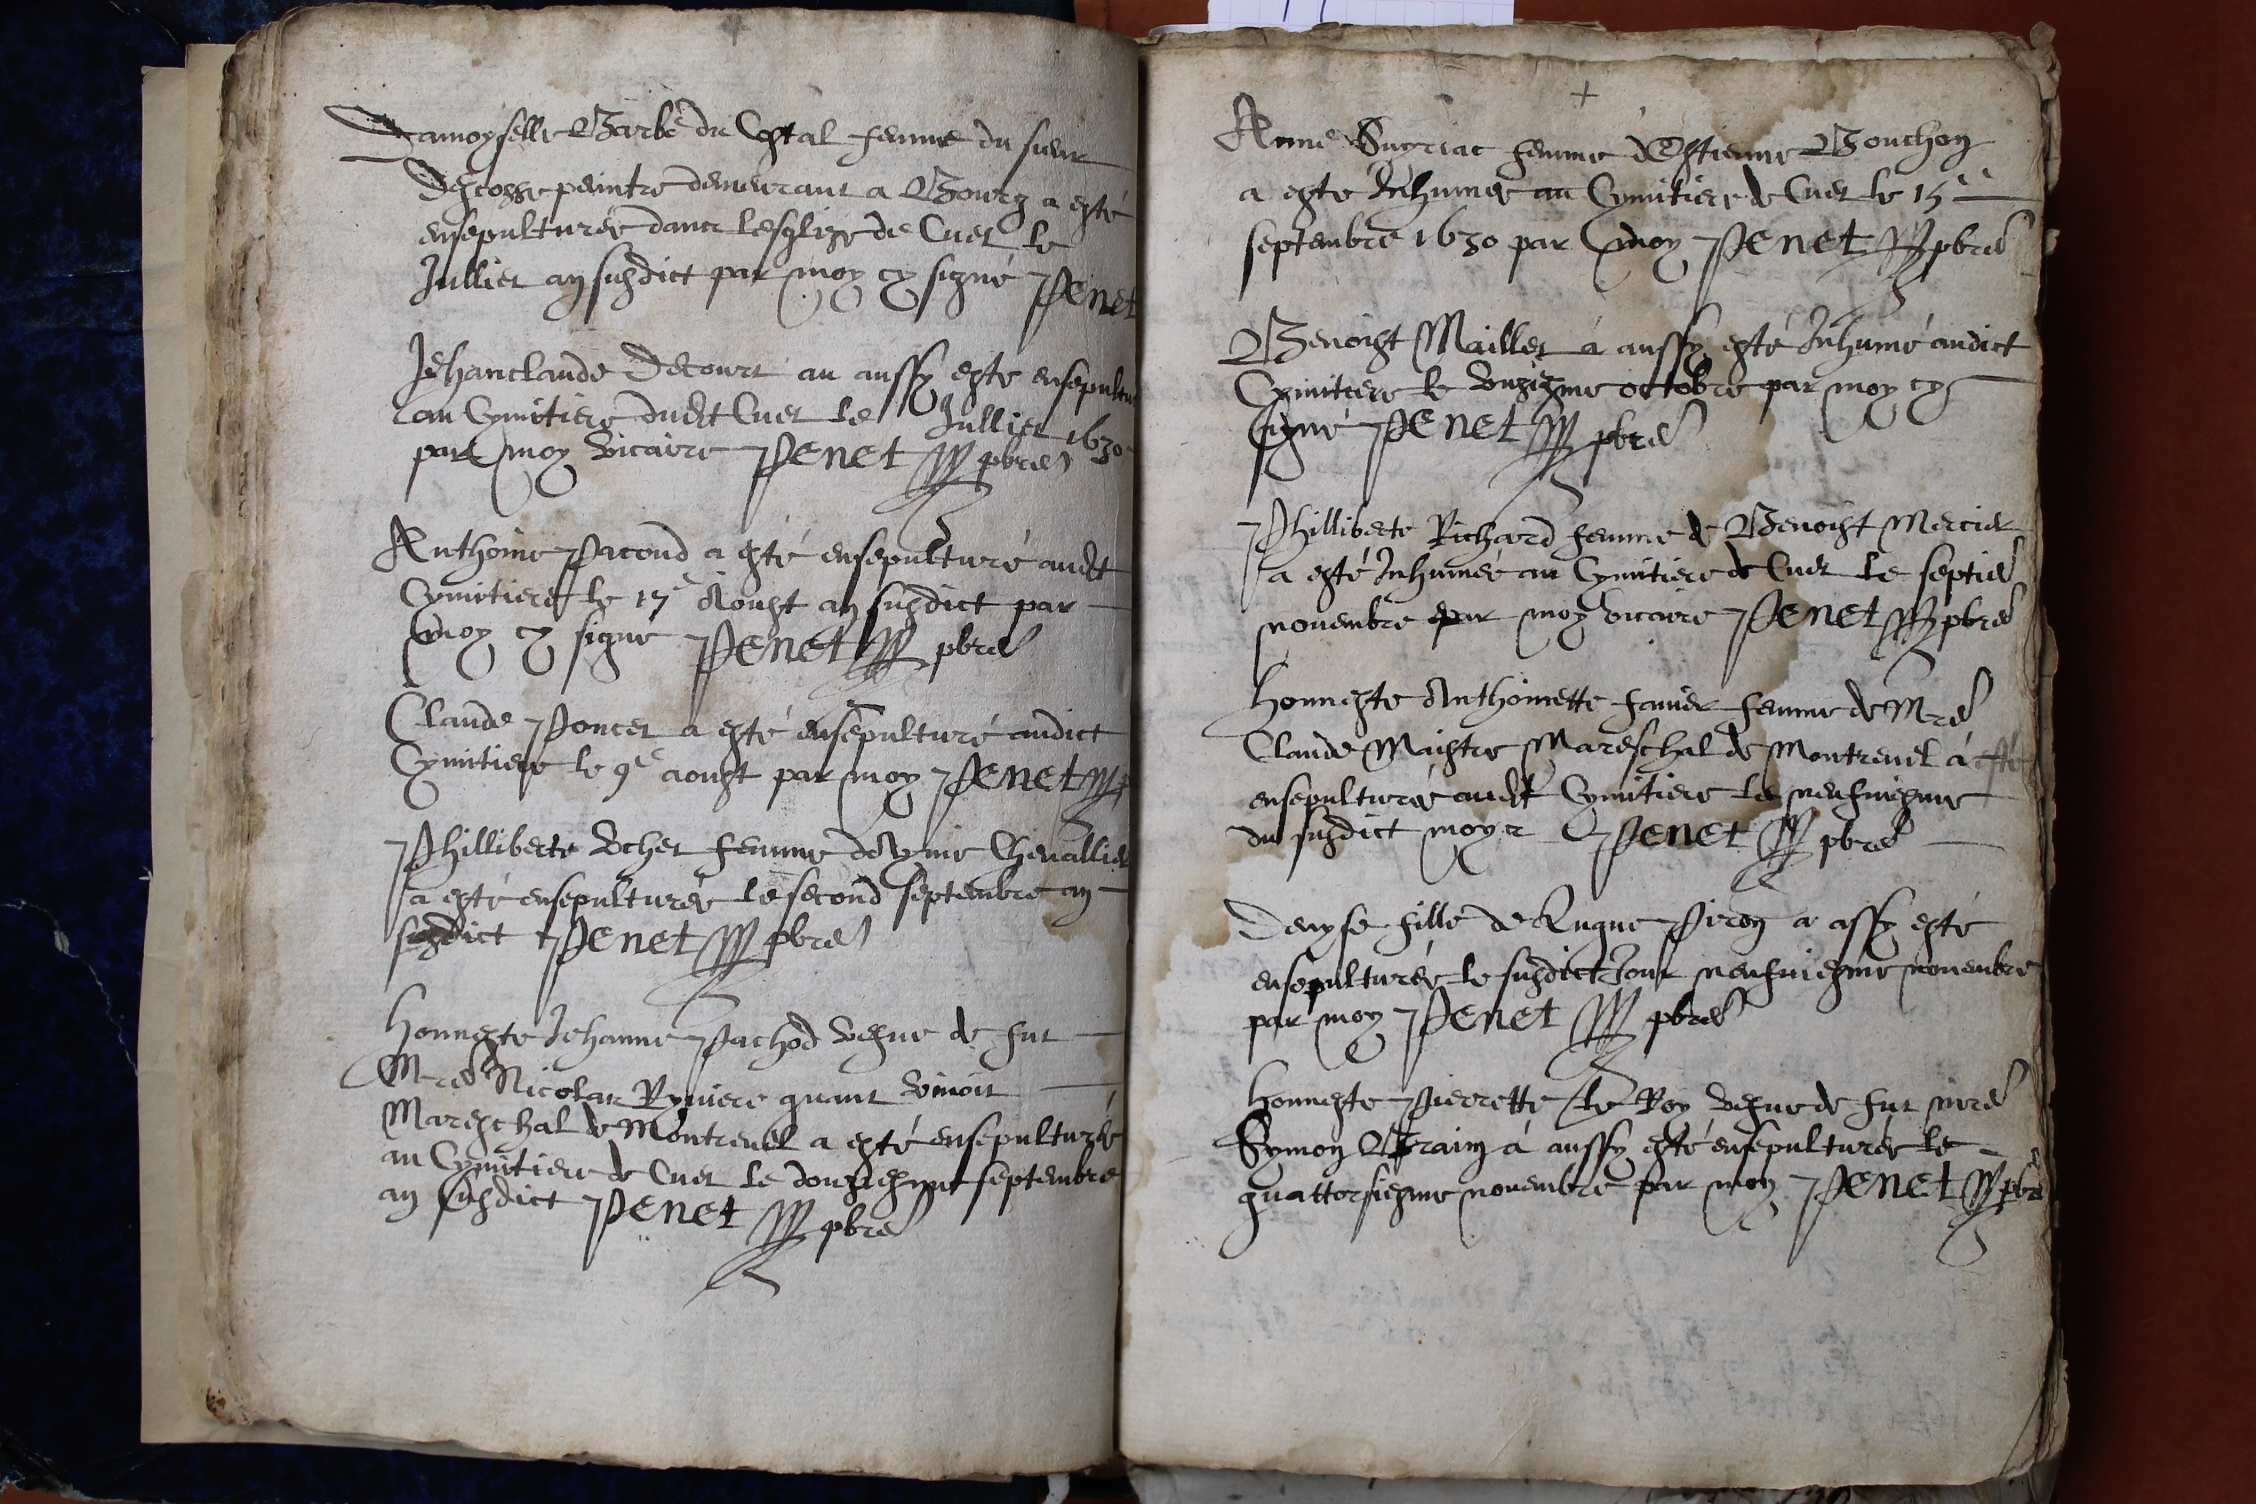 Damoyselle Barbe du Costal femme du sieur
Descosse peintre demeurant a Bourg a esté
ensepulturée dans lesglize de Cuet le
Jullier an susdict par moy cy signé Penet
Jehanclaude Decourt au aussy esté ensepultu
au Cymitiere dudt Cuet le Jullier 1630
par moy vicaire Penet pbre
Anthoine Pacoud a esté ensepulturé audt
Cymitiere le 17e Aoust an susdict par
moy cy signé Penet pbre
Claude Poncet a esté ensepulturé audict
Cymitiere le 9e aoust par moy Penet
Philliberte Vcher femme dAyme Chevallier
a esté ensepulturée le second septembre an
susdict Penet pbre
Honneste Jehanne Pachod vesve de fut
Mre Nicolas Ryviere quant vivoit
Mareschal de Montrevel a esté ensepulturée
au Cymitiere de Cuet le douziesme septembre
an susdict Penet pbre
Anne Suyriac femme dEstienne Bouchon
a esté Inhumée au Cymitiere de Cuet le 15e
septembre 1630 par moy Penet pbre
Benoist Maillet a aussy esté Inhumé audict
Cymitiere le unziesme octobre par moy cy
signé Penet pbre
Philliberte Richard femme de Benoist Mercier
a esté Inhumée au Cymitiere de Cuet le septie
novembre par moy vicaire Penet pbre
Honneste Anthoinette favier femme de Mre
Claude Maistre Mareschal de Montrevel a esté
ensepulturée audt Cymitiere le neufviesme
du susdict moys Penet pbre
Denyse fille de Piroy a assy esté
ensepulturée le susdict Jour neufviesme novembre
par moy Penet pbre
Honneste Pierrette le Roy vesve de fut mre
Symon a aussy esté ensepulturée le
quattorsiesme novembre par moy Penet pbre